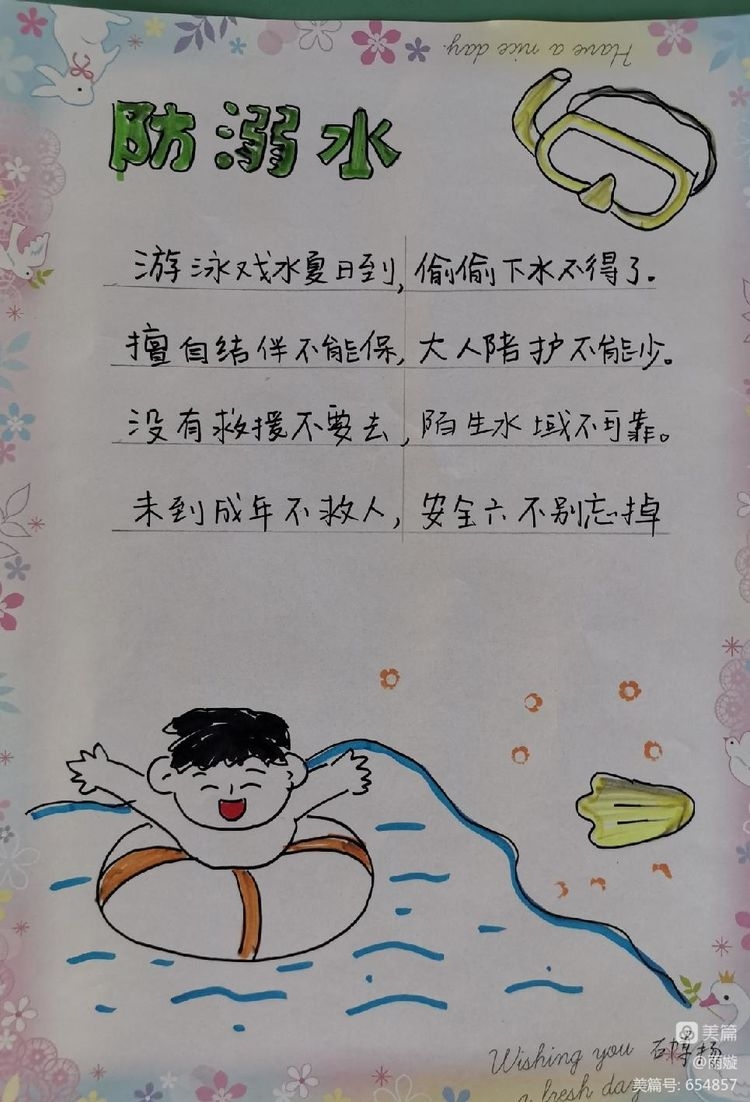 Have a nice day.
防溺水
游泳戏水夏日到,偷偷下水不得了.
擅自结伴不能保,大人陪护不能少。
没有救援不要去,陌生水域不可靠。
未到成年不救人,安全六不别忘掉
Wishing you
a fresh day
美篇
@雨璇
美篇号: 654857